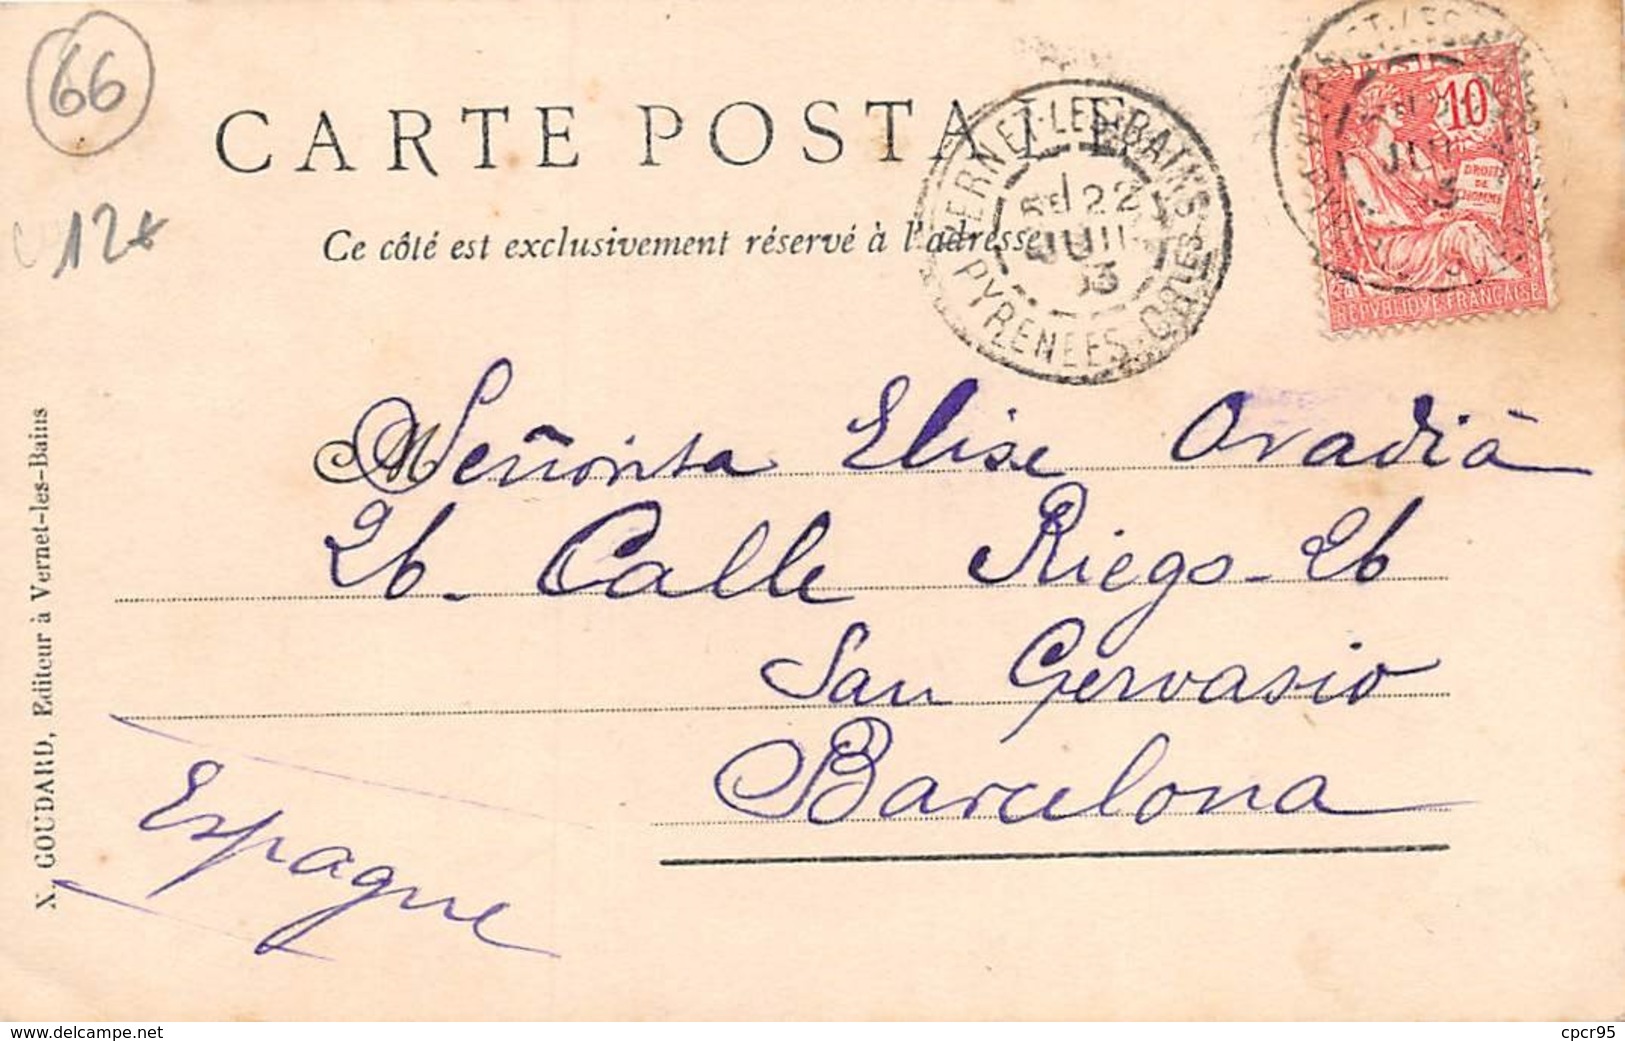 66
12*
CARTE POSTALE
Ce côté est exclusivement réservé à l'adresse
VERNET-LES-BAINS
22
JUIL
03
PYRENEES-ORLES
POSTES
10
DROITS
DE
L'HOMME
REPUBLIQUE FRANÇAISE
M
Señorita Elise Ovadià
26- Calle Riego-26
San Gervasio
Barcelona
Espagne
X. GOUDARD, Editeur à Vernet-les-Bains
www.delcampe.net
cpcr95